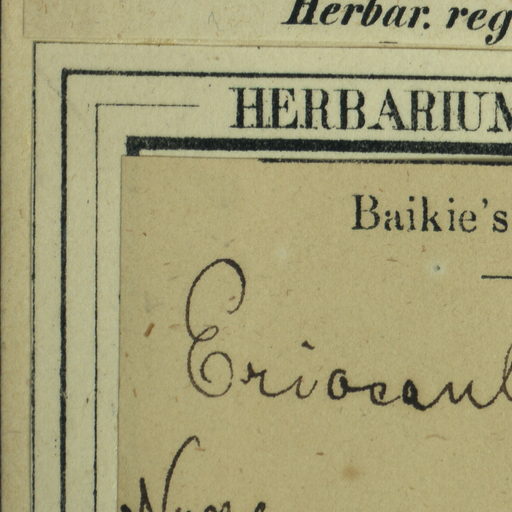 Herbar. reg
HERBARIUM
Baikie's
Eriocaul